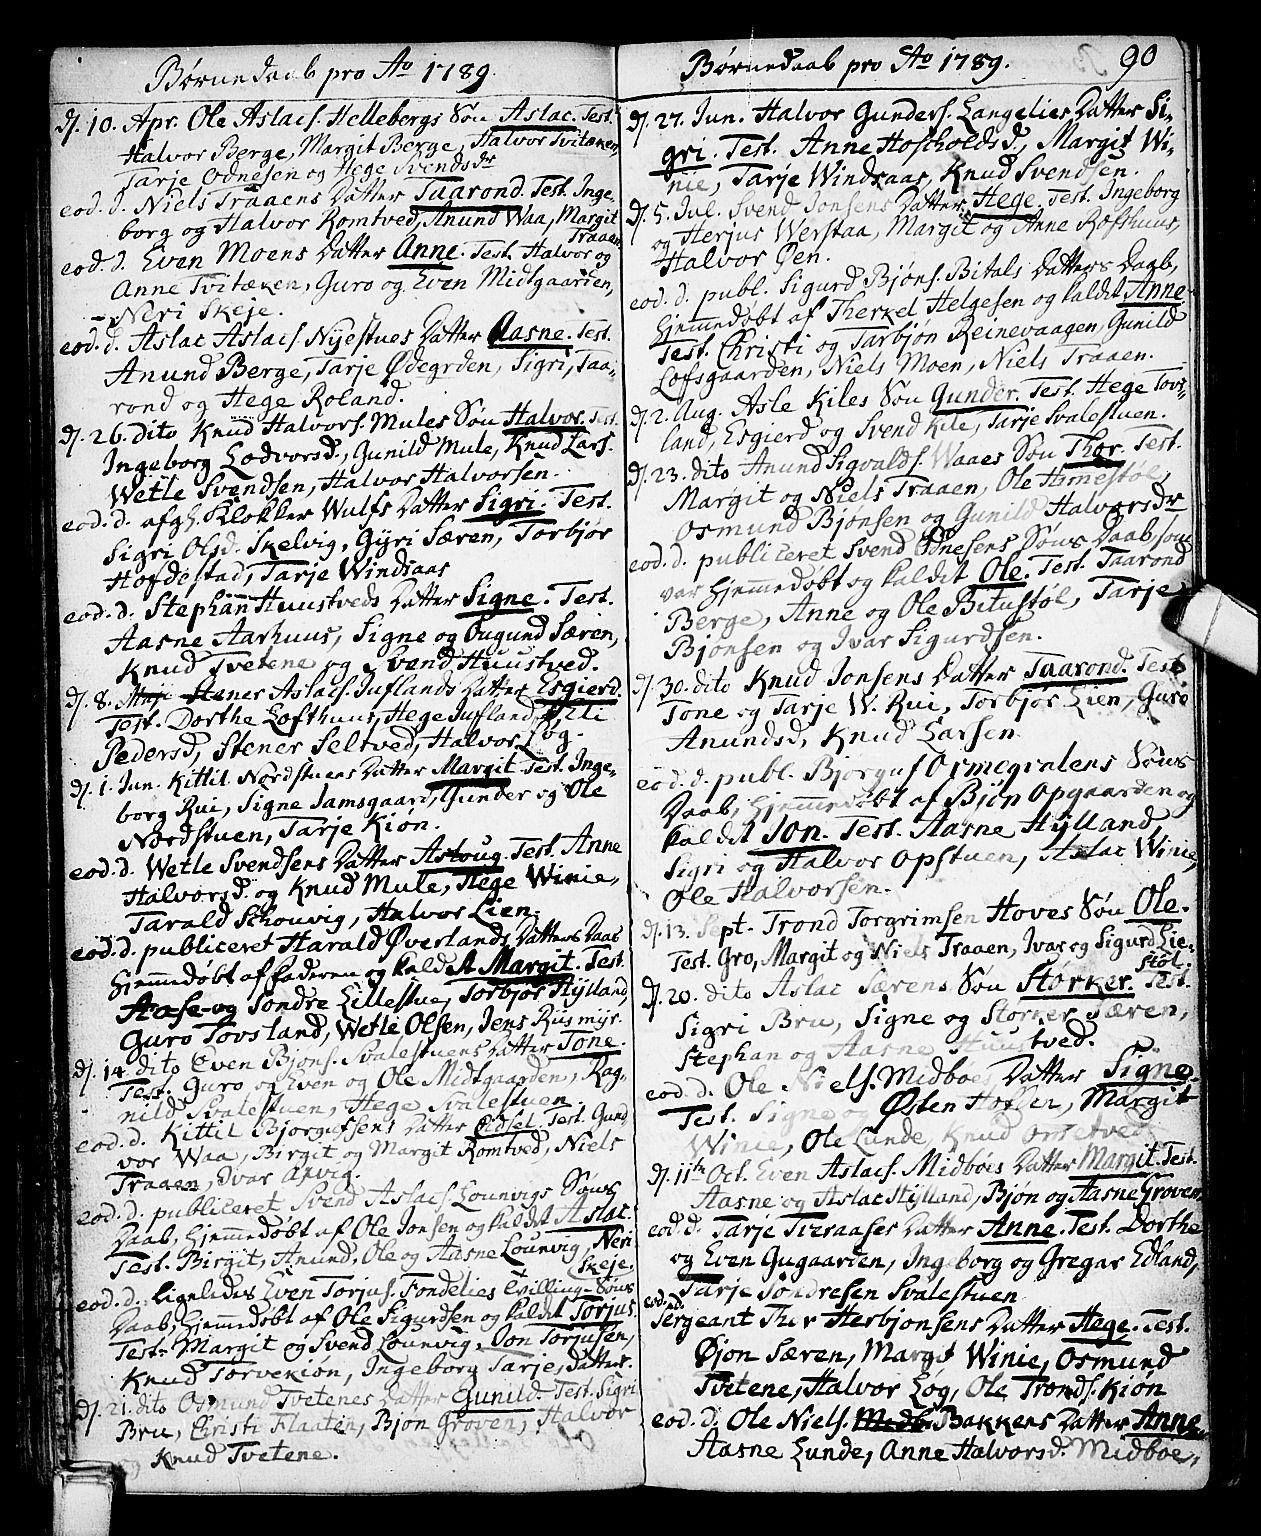 Børnedaab pro Ao 1789.
dj. 10. Apr. Ole Aslacs. Hellebergs Søn Aslac. Test.
Halvor Berge, Margit Berge, Halvor Tvitæken,
Tarje Odnesen og Hege Svendsdr
eod. d. Niels Traaens Datter Taarond. Test. Inge-
borg og Halvor Romtved, Anund Waa, Margit
Traaen
eod. d. Even Moens Datter Anne. Test. Halvor og
Anne Tvitæken, Guro og Even Midtgaarden,
Neri Skeje.
eod. d. Aslac Aslacs. Nijestues Datter Aasne. Test.
Anund Berge, Tarje Ødegrden, Sigri, Taa-
rond og Hege Roland.
dj. 26. dito Knud Halvors. Mules Søn Halvor. Test.
Ingeborg Lodvorsd., Gunild Mule, Knud Lars.
Wetle Svendsen, Halvor Halvorsen.
eod. d. afg. Klokker Wulfs Datter Sigri. Test.
Sigri Olsd. Skelvig, Gyri Særen, Torbjør
Hofdestad, Tarje Windsaas
eod. d. Stephan Huustveds Datter Signe. Test.
Aasne Aarhuus, Signe og Ougund Særen,
Knud Tvetene og Svend Huustved.
dj. 8. Maji Stener Aslacs. Juflands Datter Esgierd.
Test. Dorthe Lofthuus, Hege Jufland,
Pedersd., Stener Seltved, Halvor Løg.
dj. 1. Jun. Kittil Nordstuens Datter Margit. Test. Inge-
borg Rui, Signe Jamsgaard, Gunder og Ole
Nordstuen, Tarje Kiøn.
eod. d. Wetle Svendsens Datter Astoug. Test. Anne
Halvorsd. og Knud Mule, Hege Winie,
Tarald Schouvig, Halvor Lien.
eod. d. publiceret Harald Øverlands Datters Daab
hjemmedøbt af Faderen og kaldet Margit. Test.
Aase og Sondre Lillestue, Torbjør Hylland,
Guro Tovsland, Wetle Olsen, Jens Riismyr.
dj. 14. dito Even Bjøns. Svalestuens Datter Tone.
Test. Guro og Even og Ole Midtgaarden, Rag-
nild Svalestuen, Hege Svalestuen
eod. d. Kittil Bjorgufsens Datter Eidsel. Test. Gund
vor Waa, Birgit og Margit Romtved, Niels
Traaen, Ivar Arvig.
eod. d. publiceret Svend Aslacs. Lounvigs Søns
Daab, hjemmedøbt af Ole Jonsen og kaldet Aslac.
Test. Birgit, Anund, Ole og Aasne Lounvig, Neri
Skeje.
eod. d. ligeledes Even Torjus. Fondelies tvilling-Søns
Daab, hjemmedøbt af Ole Sigurdsen og kaldet Torjus.
Test. Margit og Svend Lounvig, Jon Torjusen,
Knud Torvekiøn, Ingeborg Tarje, datter.
dj. 21. dito Osmund Tvetenes Datter Gunild. Test. Sigri
Bru, Christi Flaaten, Bjøn Groven, Halvor
Knud Tvetene.
Børnedaab pro Ao 1789. 90
dj. 27. Jun. Halvor Gunders. Langelies Datter Si-
gri. Test. Anne Hofholdsd., Margit Wi-
nie, Tarje Windsaas, Knud Svendsen.
dj. 5. Jul. Svend Jonsens Datter Hege. Test. Ingeborg
og Herjus Werstaa, Margit og Anne Rofthuus,
Halvor Øen.
eod. d. publ. Sigurd Bjøns. Bitals Datters Daab,
hjemmedøbt af Therkel Helgesen og kaldet Anne
Test. Christi og Tarbjøn Reinevaagen, Gunild
Lofsgaarden, Niels Moen, Niels Traaen.
dj. 2. Aug. Asle Kiles Søn Gunder. Test. Hege Tovs-
land, Esgierd og Svend Kile, Tarje Svalestuen.
dj. 23. dito Anund Sigvalds. Waaes Søn Thor. Test.
Margit og Niels Traaen, Ole Himestøl
Osmund Bjønsen og Gunild Halvorsdr
eod. d. publiceret Svend Odnesens Søns Daab, som
var hjemmedøbt og kaldet Ole. Test. Taarond
Berge, Anne og Ole Bitustøl, Tarje
Bjønsen og Ivar Sigurdsen.
dj. 30. dito Knud Jonsens Datter Taarond. Test
Tone og Tarje W. Rui, Torbjør Lien, Guro
Anundsd, Knud Larsen
eod. d. publ. Bjorguf Ormegralens Søns
Daab, hjemmedøbt af Bjøn Opgaarden og
kaldet Jon. Test. Aasne Hylland
Sigri og Halvor Opstuen, Aslac Winie,
Ole Halvorsen.
dj. 13. Sept. Trond Torgrimsen Hoves Søn Ole.
Test. Gro, Margit og Niels Traaen, Ivar og Sigurd Lie-
støl.
dj. 20. dito Aslac Særens Søn Storker. Test.
Sigri Bru, Signe og Storker Særen,
Stephan og Aasne Huustved.
eod. d. Ole Niels. Midboes Datter Signe.
Test. Signe og Østen Hofter, Margit
Winie, Ole Lunde, Knud Ormtved
dj. 11te Oct. Even Aslacs. Midbøes Datter Margit. Test.
Aasne og Aslac Hylland, Bjøn og Aasne Groven
eod. d. Tarje Tveraases Datter Anne. Test. Dorthe
og Even Gugaarden, Ingeborg og Gregar Edland,
Tarje Sondresen Svalestuen
eod. d.
Sergeant Thor Herbjonsens Datter Hege. Test.
Øjon Særen, Margit Winie, Osmund
Tvetene, Halvor Løg, Ole Tronds. Kiøn
eod. d. Ole Niels. Bakkens Datter Anne
Aasne Lunde, Anne Halvorsd. Midboe,